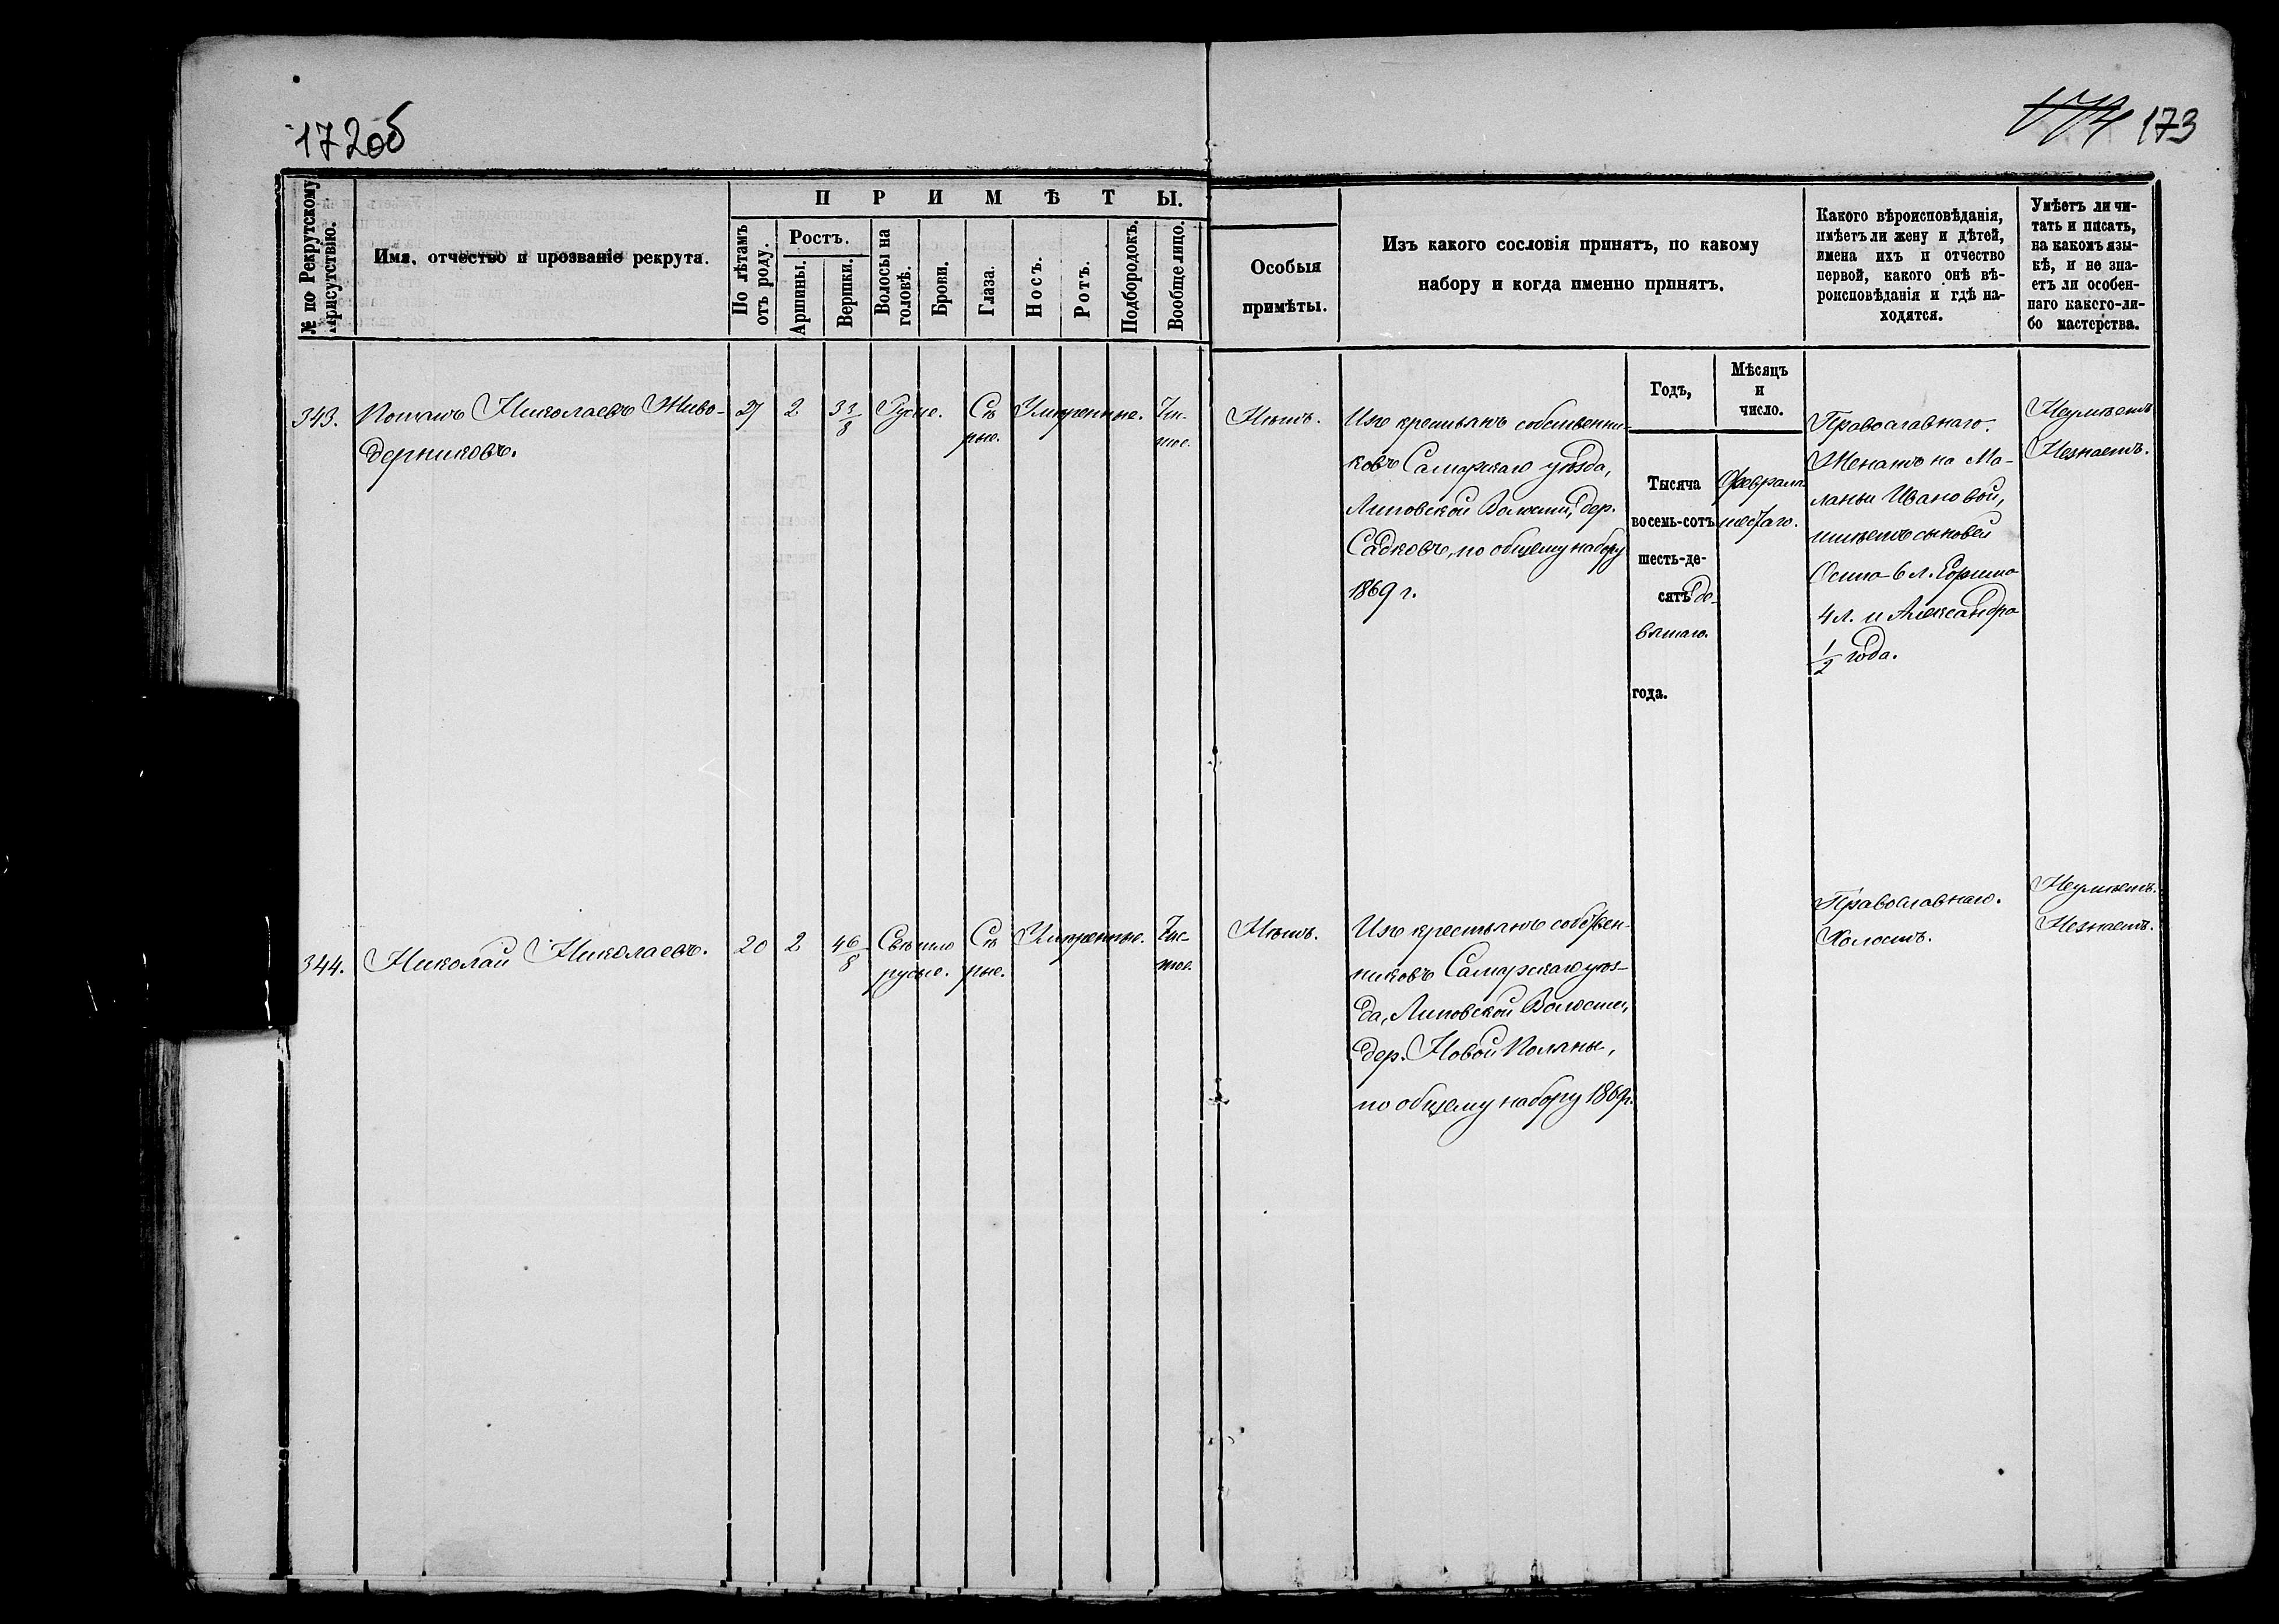 172об
174 173
№ по Рекрутскому присутствію.
Имя, отчество и прозваніе рекрута.
ПРИМѢТЫ.
По лѣтамъ отъ роду.
Ростъ.
Аршины.
Вершки.
Волосы на головѣ.
Брови.
Глаза.
Носъ.
Ротъ.
Подбородокъ.
Вообще лицо.
Особыя
примѣты.
Изъ какого сословія принятъ, по какому
набору и когда именно принятъ.
Какого вѣроисповѣданія,
имѣетъ ли жену и дѣтей,
имена ихъ и отчество
первой, какого онѣ вѣ-
роисповѣданія и гдѣ на-
ходятся.
Умѣетъ ли чи-
тать и писать,
на какомъ язы-
кѣ, и не зна-
етъ ли особен-
наго какого-ли-
бо мастерства.
Годъ,
Мѣсяцъ
и
число.
343.
Николаевъ Живо-
дерниковъ.
27
2
3 3/8
Русые.
Сѣ
рые.
Умѣренные.
Чи-
стое.
Нѣтъ.
Изъ крестьянъ собственни-
ковъ Самарскаго уѣзда,
Липовской Волости, дер.
Садковъ, по общему набору
1869 г.
Тысяча
восемь-сотъ
шесть-де-
сятъ де-
вятаго.
года.
Февраля
шестаго.
Православнаго.
Женатъ на Ма-
ланьи Ивановой,
имѣетъ сыновей
Осипа 6 л. Ефима
4 л. и Александра
1/2 года.
Неумѣетъ
Незнаетъ.
344.
Николай Николаевъ.
20
2
4 6/8
Свѣтло
русые.
Сѣ
рые.
Умѣренные.
Чис-
тое.
Нѣтъ.
Изъ крестьянъ собствен-
никовъ Самарскаго уѣз-
да, Липовской Волости,
дер. Новой Поляны,
по общему набору 1869 г.
Православнаго.
Холостъ.
Неумѣетъ.
Незнаетъ.